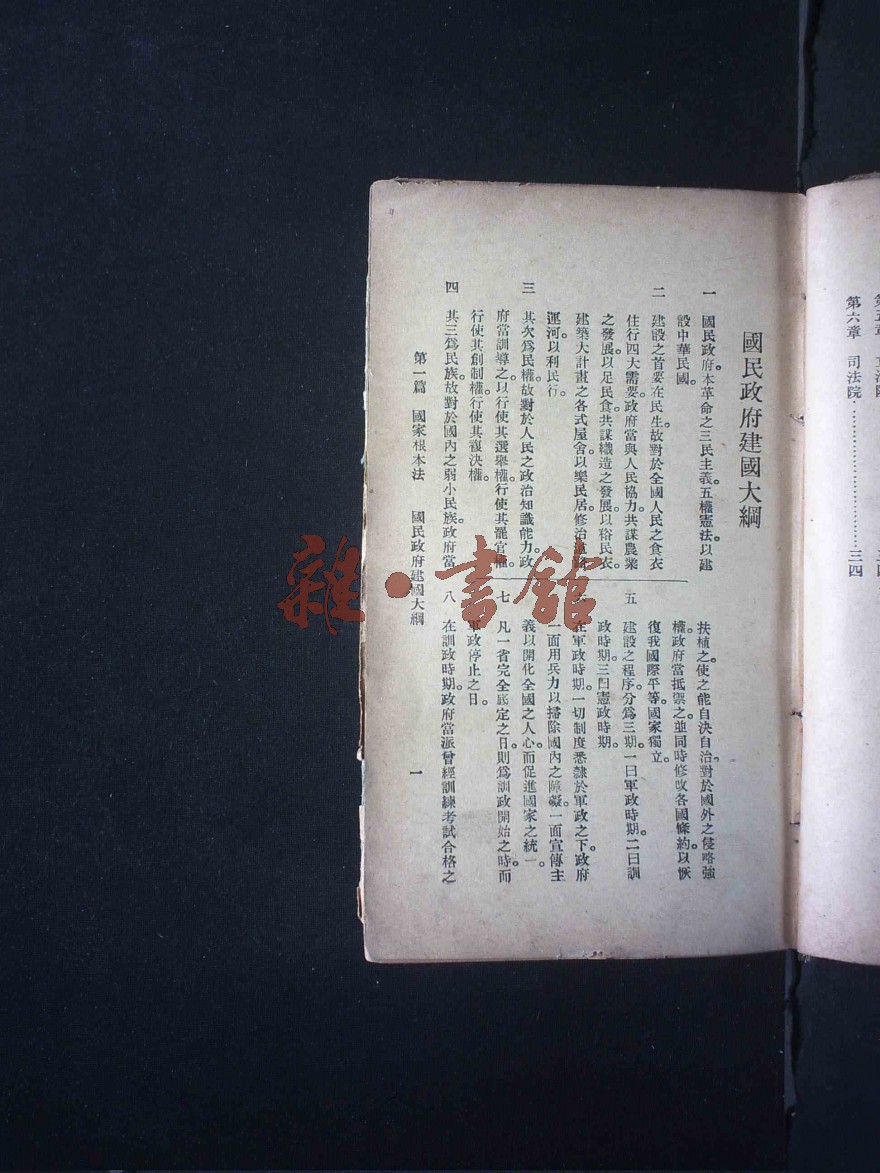 國民政府建國大綱
一 國民政府。本革命之三民主義。五權憲法。以建
設中華民國。
二 建設之首要在民生。故對於全國人民之食衣
住行四大需要。政府當與人民協力。共謀農業
之發展。以足民食。共謀織造之發展。以裕民衣。
建築大計畫之各式屋舍。以樂民居。修治
運河。以利民行。
三 其次為民權。故對於人民之政治知識能力。政
府當訓導之。以行使其選舉權。行使其罷官權。
行使其創制權。行使其複決權。
四 其三為民族。故對於國內之弱小民族。政府當
扶植之。使之能自決自治。對於國外之侵略強
權。政府當抵禦之。並同時修改各國條約。以恢
復我國際平等。國家獨立。
五 建設之程序。分為三期。一曰軍政時期。二曰訓
政時期。三曰憲政時期。
在軍政時期。一切制度悉隸於軍政之下。政府
一面用兵力以掃除國內之障礙。一面宣傳主
義以開化全國之人心。而促進國家之統一。
七 凡一省完全底定之日。則為訓政開始之時。而
軍政停止之日。
八 在訓政時期。政府當派曾經訓練考試合格之
第一篇 國家根本法 國民政府建國大綱
一
第六章 司法院………………三四
雜·書館